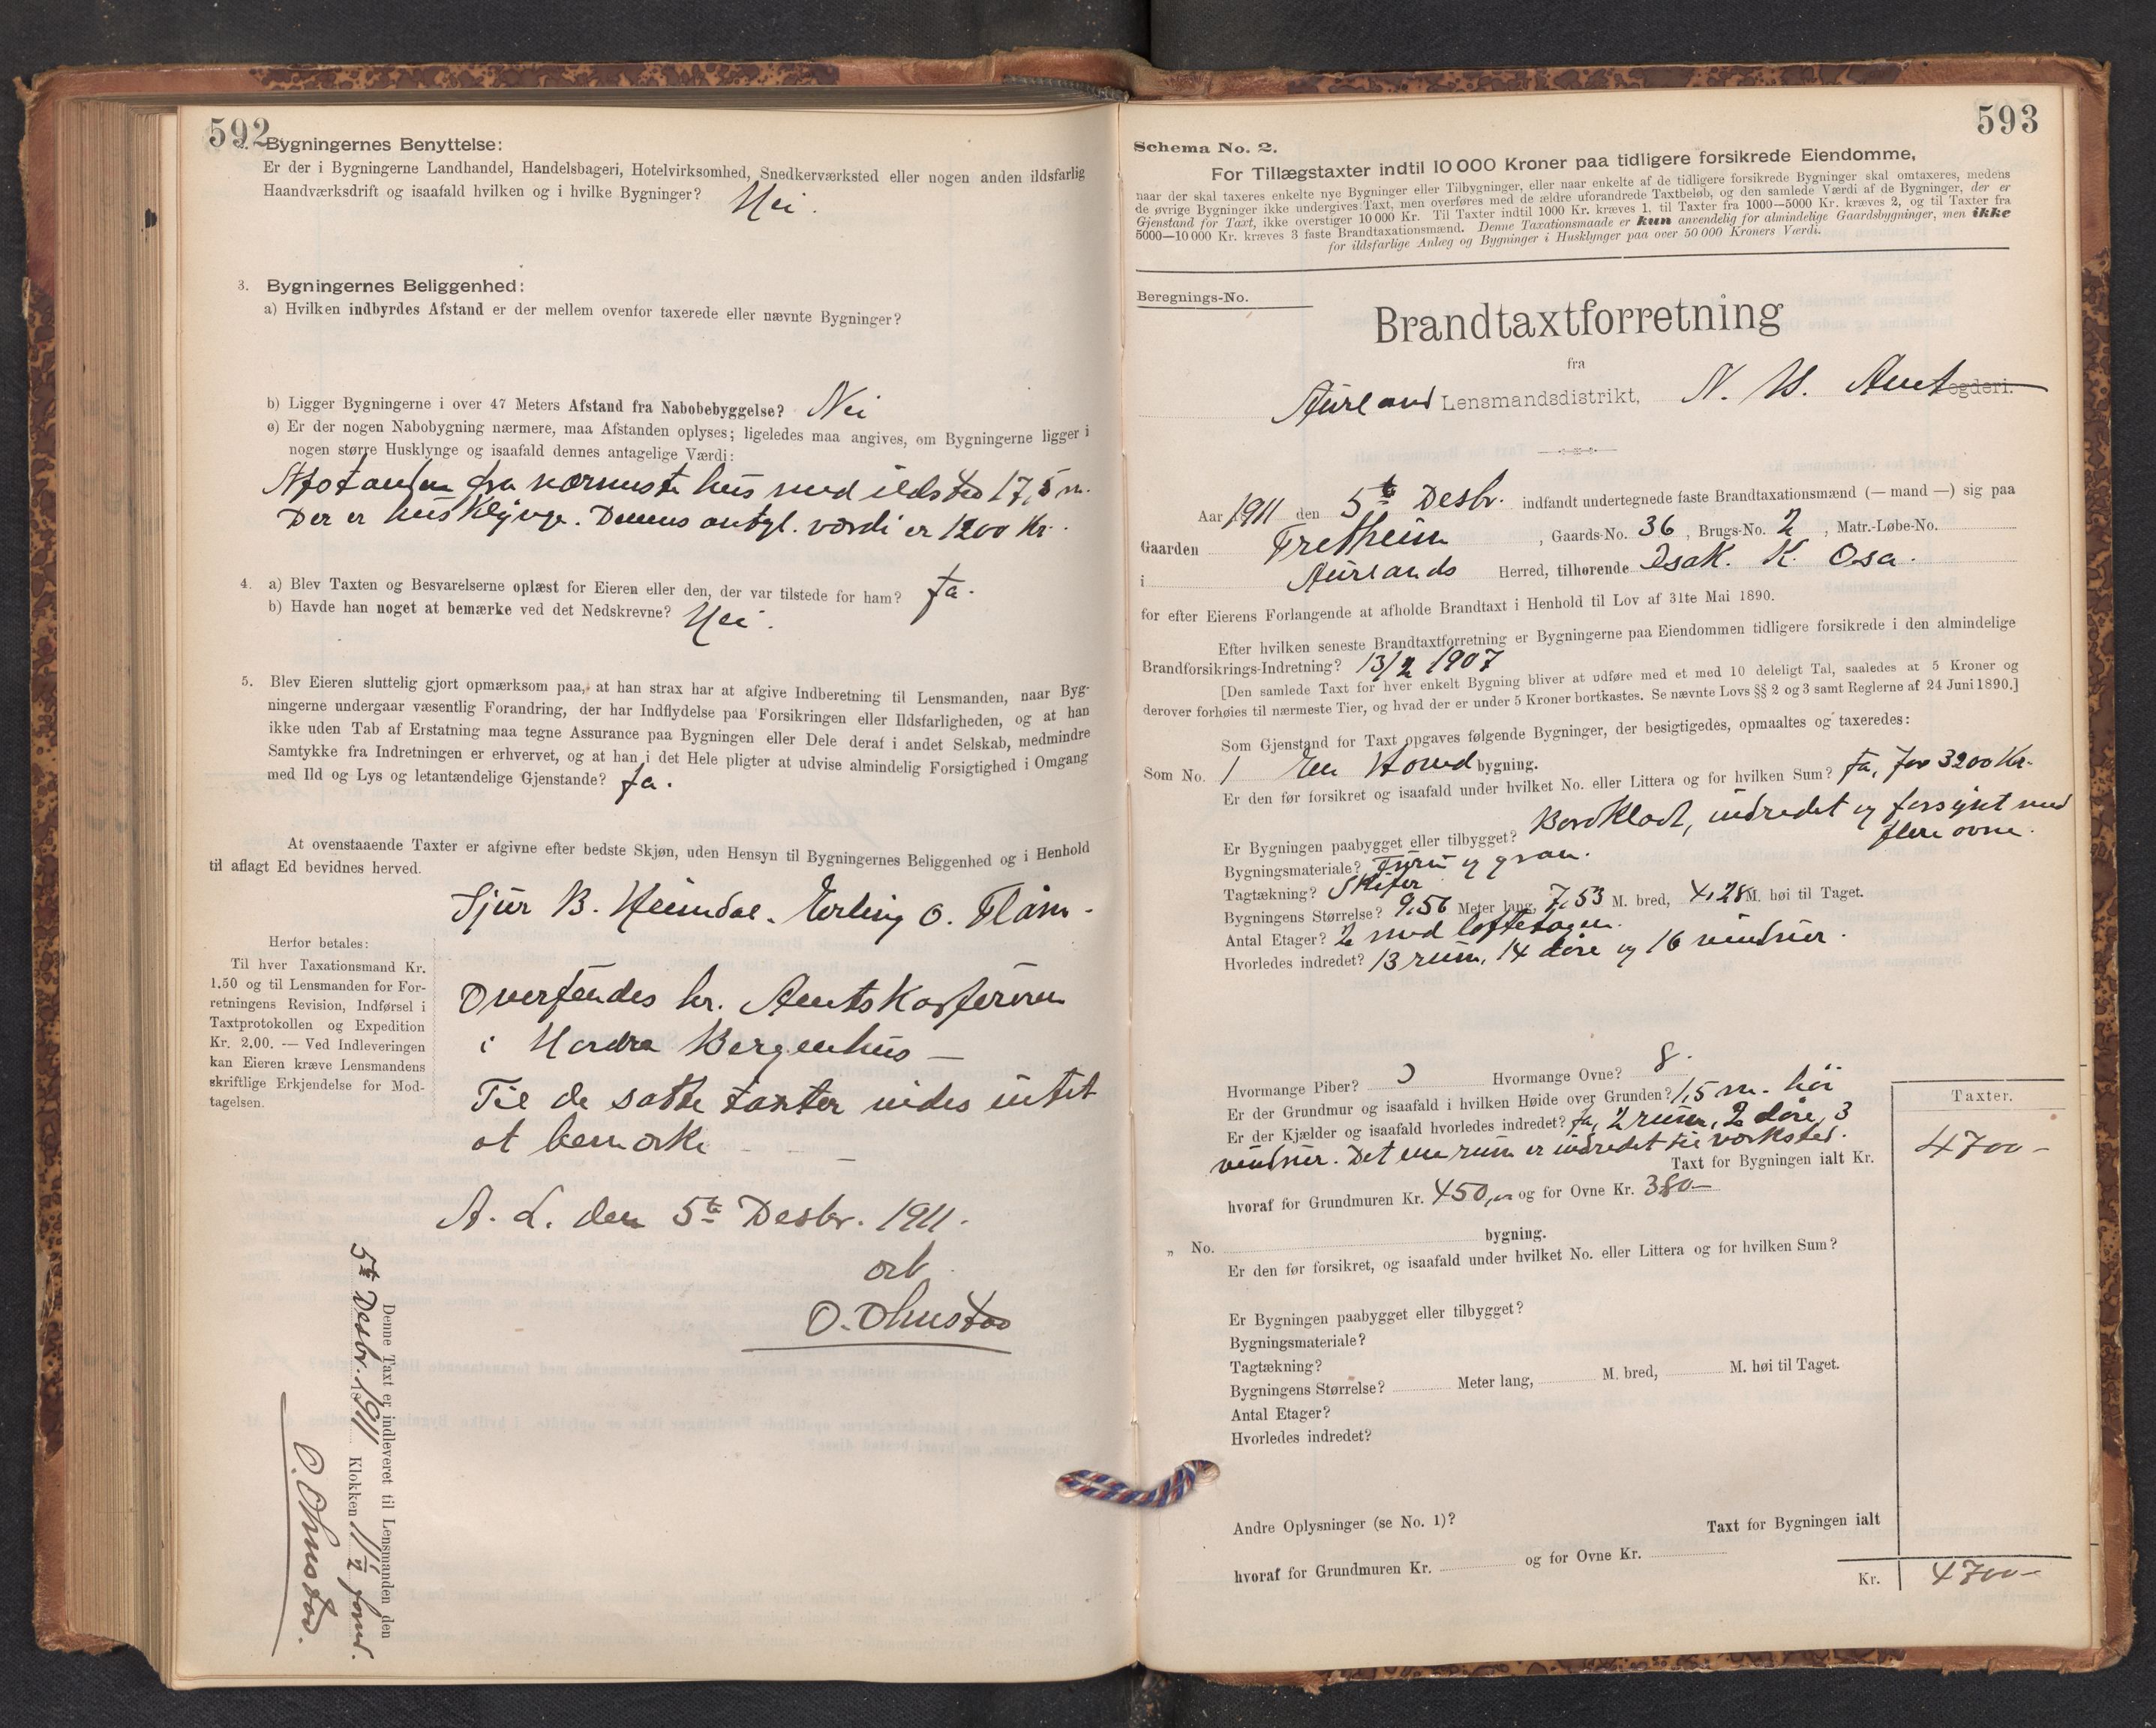 592
2. Bygningernes Benyttelse:
Er der i Bygningerne Landhandel, Handelsbageri, Hotelvirksomhed, Snedkerværksted eller nogen anden ildsfarlig
Haandværksdrift og isaafald hvilken og i hvilke Bygninger? Nei.
3. Bygningernes Beliggenhed:
a) Hvilken indbyrdes Afstand er der mellem ovenfor taxerede eller nævnte Bygninger?
b) Ligger Bygningerne i over 47 Meters Afstand fra Nabobebyggelse? Nei
c) Er der nogen Nabobygning nærmere, maa Afstanden oplyses; ligeledes maa angives, om Bygningerne ligger i
nogen større Husklynge og isaafald dennes antagelige Værdi:
Afstanden fra nærmeste hus med ildsted 17,5 m.
Der er husklynge. Dennes antagl. værdi er 1200 Kr.
4. a) Blev Taxten og Besvarelserne oplæst for Eieren eller den, der var tilstede for ham? Ja.
b) Havde han noget at bemærke ved det Nedskrevne? Nei.
5. Blev Eieren sluttelig gjort opmærksom paa, at han strax har at afgive Indberetning til Lensmanden, naar Byg-
ningerne undergaar væsentlig Forandring, der har Indflydelse paa Forsikringen eller Ildsfarligheden, og at han
ikke uden Tab af Erstatning maa tegne Assurance paa Bygningen eller Dele deraf i andet Selskab, medmindre
Samtykke fra Indretningen er erhvervet, og at han i det Hele pligter at udvise almindelig Forsigtighed i Omgang
med Ild og Lys og letantændelige Gjenstande? Ja.
At ovenstaaende Taxter er afgivne efter bedste Skjøn, uden Hensyn til Bygningernes Beliggenhed og i Henhold
til aflagt Ed bevidnes herved.
Sjur B. Heimdal. Erling O. Flåm.
Herfor betales:
Til hver Taxationsmand Kr.
1.50 og til Lensmanden for For-
retningens Revision, Indførsel i
Taxtprotokollen og Expedition
Kr. 2.00. — Ved Indleveringen
kan Eieren kræve Lensmandens
skriftlige Erkjendelse for Mod-
tagelsen.
Oversendes hr. Amtskassereren
i Nordre Bergenhus —
Til de satte taxter vides intet
at bemærke — —
A. L. den 5te Desbr. 1911.
O. Ohnstad
Denne Taxt er indleveret til Lensmanden den
5te Desbr. 1911 Klokken 11 1/2 form.
O. Ohnstad.
593
Schema No. 2.
For Tillægstaxter indtil 10 000 Kroner paa tidligere forsikrede Eiendomme,
naar der skal taxeres enkelte nye Bygninger eller Tilbygninger, eller naar enkelte af de tidligere forsikrede Bygninger skal omtaxeres, medens
de øvrige Bygninger ikke undergives Taxt, men overføres med de ældre uforandrede Taxtbeløb, og den samlede Værdi af de Bygninger, der er
Gjenstand for Taxt, ikke overstiger 10 000 Kr. Til Taxter indtil 1000 Kr. kræves 1, til Taxter fra 1000—5000 Kr. kræves 2, og til Taxter fra
5000—10 000 Kr. kræves 3 faste Brandtaxationsmænd. Denne Taxationsmaade er kun anvendelig for almindelige Gaardsbygninger, men ikke
for ildsfarlige Anlæg og Bygninger i Husklynger paa over 50 000 Kroners Værdi.
Beregnings-No.
Brandtaxtforretning
fra
Aurland Lensmandsdistrikt, N. B. Amt ogderi.
Aar 1911 den 5te Desbr. indfandt undertegnede faste Brandtaxationsmænd (— mand —) sig paa
Gaarden Fretheim, Gaards-No. 36, Brugs-No. 2, Matr.-Løbe-No.
i Aurlands Herred, tilhørende Isak. K. Osa.
for efter Eierens Forlangende at afholde Brandtaxt i Henhold til Lov af 31te Mai 1890.
Efter hvilken seneste Brandtaxtforretning er Bygningerne paa Eiendommen tidligere forsikrede i den almindelige
Brandforsikrings-Indretning? 13/2 1907
[Den samlede Taxt for hver enkelt Bygning bliver at udføre med et med 10 deleligt Tal, saaledes at 5 Kroner og
derover forhøies til nærmeste Tier, og hvad der er under 5 Kroner bortkastes. Se nævnte Lovs §§ 2 og 3 samt Reglerne af 24 Juni 1890.]
Som Gjenstand for Taxt opgaves følgende Bygninger, der besigtigedes, opmaaltes og taxeredes:
Som No. 1 En Hoved bygning.
Er den før forsikret og isaafald under hvilket No. eller Littera og for hvilken Sum? Ja, for 3200 Kr.
Er Bygningen paabygget eller tilbygget? Bordklædt, indredet og forsynt med
flere ovne.
Bygningsmateriale? Furu og gran.
Tagtækning? Skifer
Bygningens Størrelse? 9,56 Meter lang, 7,53 M. bred, 4,28 M. høi til Taget.
Antal Etager? 2 med loftetagen.
Hvorledes indredet? 13 rum, 14 døre og 16 vinduer.
Hvormange Piber? Hvormange Ovne? 8.
Er der Grundmur og isaafald i hvilken Høide over Grunden? 1,5 m. høi
Er der Kjælder og isaafald hvorledes indredet? Ja, 2 rum, 2 døre, 3
vinduer. Det ene rum er indredet til værksted.
Taxter.
Taxt for Bygningen ialt Kr. 4700 —
hvoraf for Grundmuren Kr. 450,00 og for Ovne Kr. 380 —
„ No. bygning.
Er den før forsikret, og isaafald under hvilket No. eller Littera og for hvilken Sum?
Er Bygningen paabygget eller tilbygget?
Bygningsmateriale?
Tagtækning?
Bygningens Størrelse? Meter lang, M. bred, M. høi til Taget.
Antal Etager?
Hvorledes indredet?
Andre Oplysninger (se No. 1)? Taxt for Bygningen ialt
hvoraf for Grundmuren Kr. og for Ovne Kr.
Kr. 4700 —